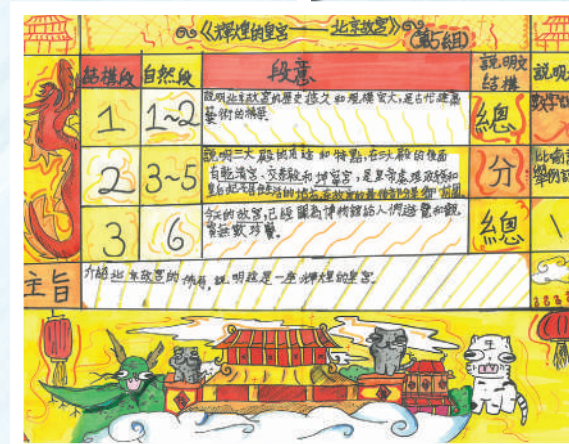 《輝煌的皇宮——北京故宮》(第5組)
結構段 自然段 段意 說明文結構 說明
1 1~2 說明北京故宮的歷史悠久和規模宏大,是古代建築
藝術的精華。 總 數字
2 3~5 說明三大殿的用途和特點,在三大殿的後面
有乾清宮、交泰殿和坤寧宮,是皇帝處理政務和
分 比喻
舉例
3 6 今天的故宮,已經開為博物館給人們遊覽和觀
賞無數珍寶。 總
主旨 介紹北京故宮的佈局,說明這是一座輝煌的皇宮。